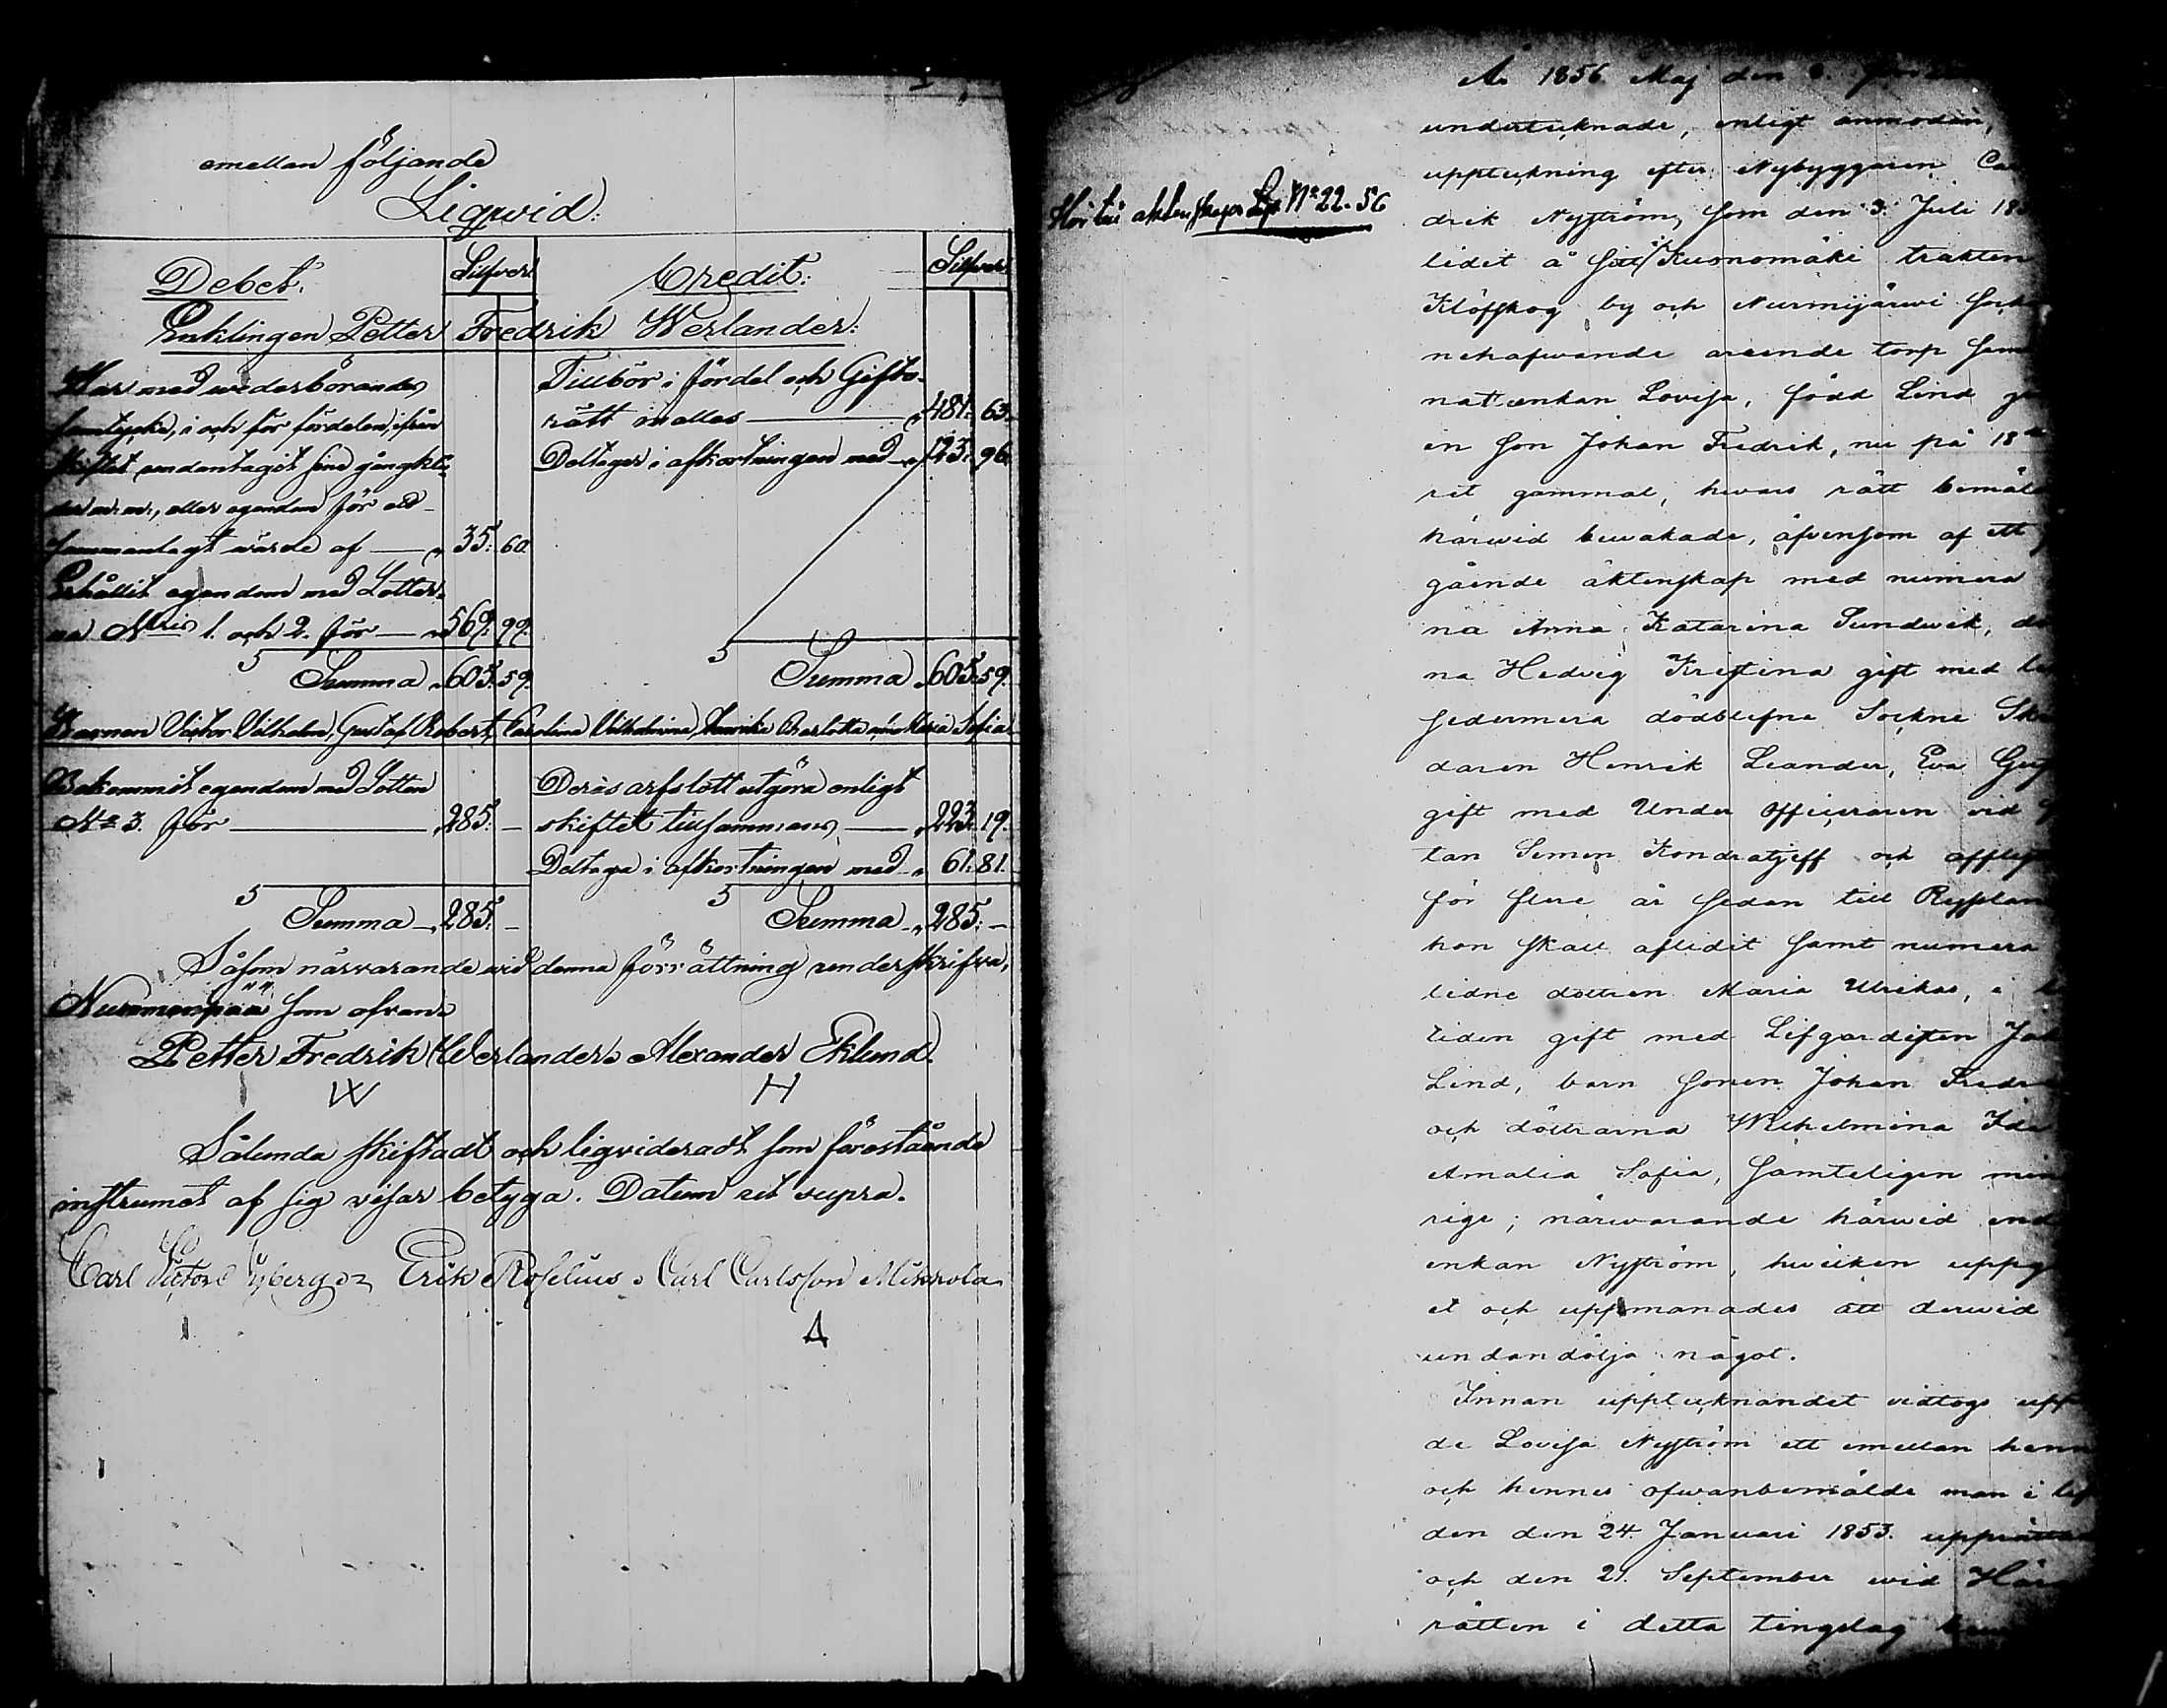 emellan följande
Liqvid:
Debet. Silfver
Credit: Silfver
Enklingen Petter Fredrik Werlander:
Har med wederbörandes
samtycke, i och för fördelen, ifrån
skiftet undantagit sine gångklä-
der m: m:, eller egendom för ett
sammanlagt wärde af — " 35: 60.
Erhållit egendom med Lotter-
na Nris 1. och 2. för — " 569: 99.
Summa " 605: 59.
Tillbör i fördel och Gifto-
rätt in alles — " 481: 63.
Deltager i afkortningen med " 123: 96.
Summa " 605: 59.
Barnen Victor Vilhelm, Gustaf Robert, Carolina Vilhelmina, Henrika Charlotta och Maria Sofia
Bekommit egendom med Lotten
No 3. för — " 285: –
Summa " 285: –
Deras arfslott utgöra enligt
skiftet tillsammans — " 223: 19.
Deltaga i afkortningen med " 61: 81.
Summa " 285: –
Såsom närvarande vid denna förrättning underskrifva,
Nummenpää som ofvan
Petter Fredrik Werlander. Alexander Eklund.
W H
Sålunda skiftadt och liqvideradt som förestående
instrument af sig visar betyga. Datum ut supra.
Carl Erik Roselius. Carl Carlsson Mikkola
A
Hör till N:o 22. 56
År 1856 Maj den
undertecknade, enligt anmodan,
uppteckning efter Nybyggaren
drik Nyström, som den 3. Juli
lidit å sitt Kuonomäki trakten
Klöfskog by och Nurmijärwi
nehafwande arrende torp
nat enkan Lovisa, född Lind
en son Johan Fredrik, nu på 18de
ret gammal, hwars rätt
härwid bewakade, äfvensom af ett
gående äktenskap med numera
na Anna Katarina Sundwik,
na Hedvig Kristina gift med
sedermera dödblefne Sockne
daren Henrik Leander, Eva
gift med Under Officeraren vid
tan Semen Kondratjeff och
för flere år sedan till
hon skall aflidit samt numera
lidne dottren Maria Ulrikas, i
tiden gift med Lifgardisten
Lind, barn sonen Johan
och döttrarna Wilhelmina Ida
Amalia Sofia, samteligen
rige; närwarande härwid
enkan Nyström, hwilken
et och uppmanades att derwid
undandölja något.
Innan upptecknandet vidtogs
de Lovisa Nyström ett emellan
och hennes ofwanbemälde man i
den den 24 Januari 1853.
och den 21. September wid
rätten i detta tingslag